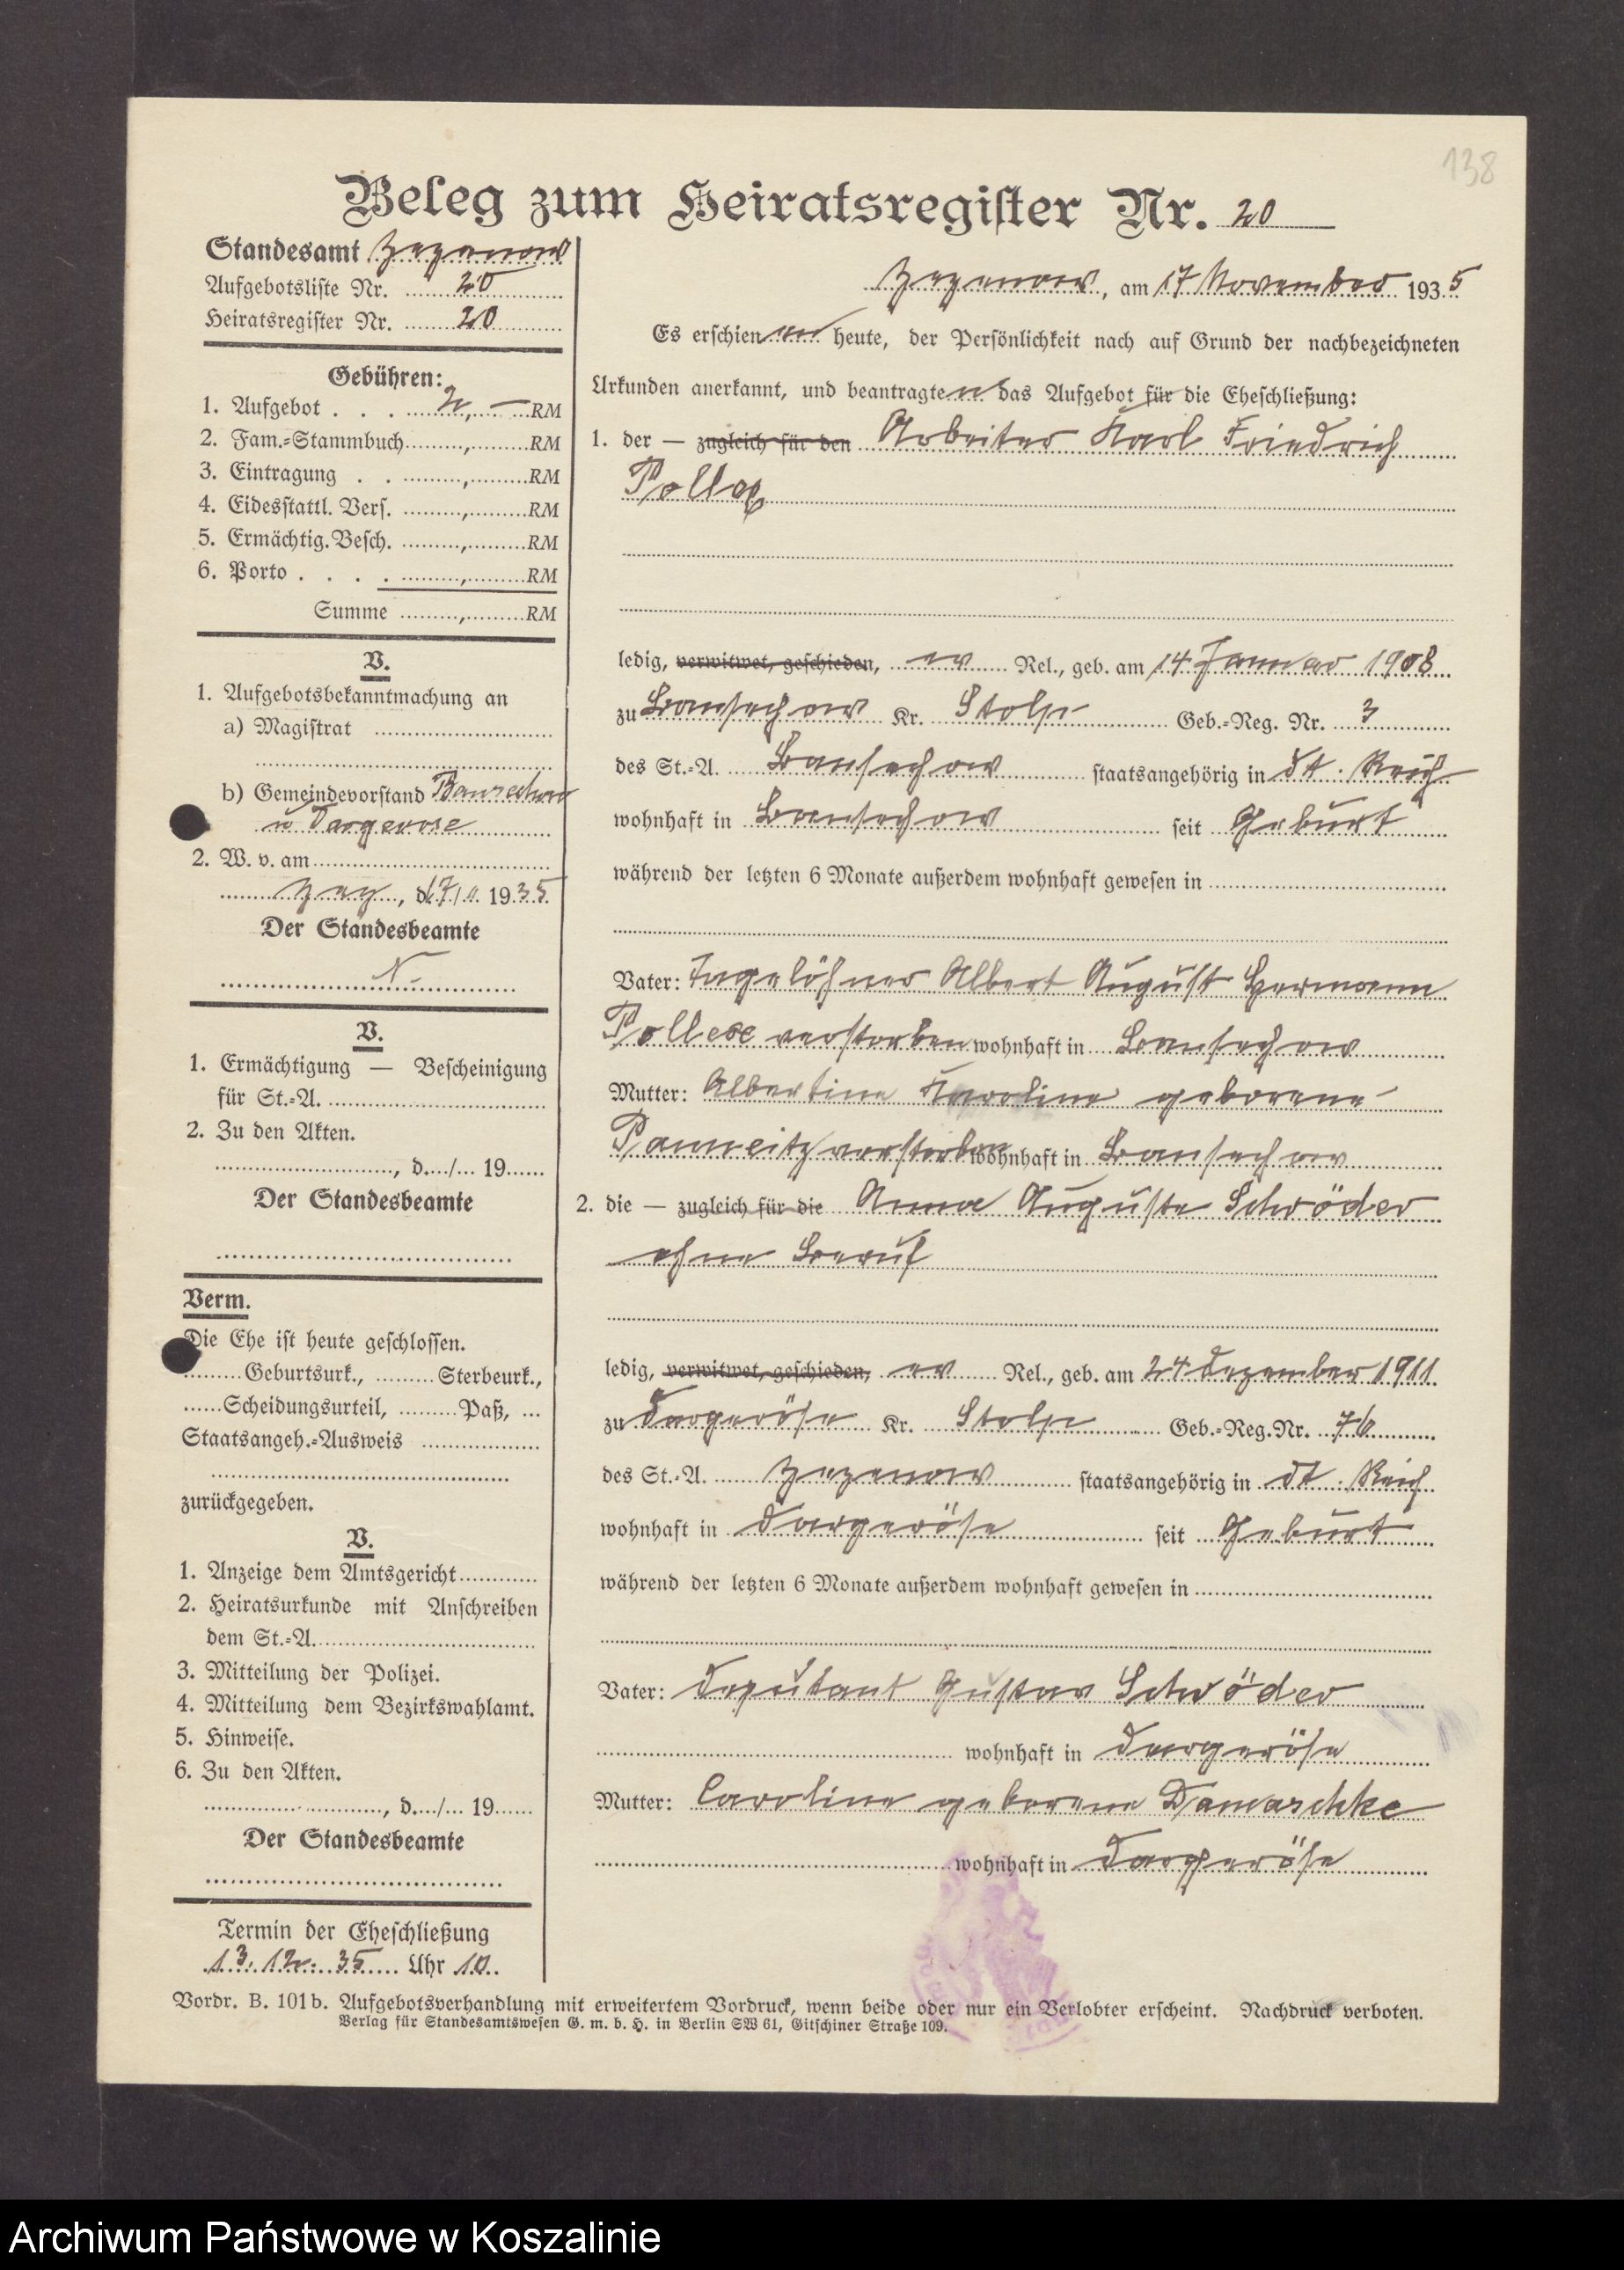 138
Beleg zum Heiratsregister Nr. 20
Standesamt Zezenow
Aufgebotsliste Nr. 20
Heiratsregister Nr. 20
Gebühren:
1. Aufgebot . . . 2,— RM
2. Fam.=Stammbuch ........,........ RM
3. Eintragung . . ........,........ RM
4. Eidesstattl. Vers. ........,........ RM
5. Ermächtig. Besch. ........,........ RM
6. Porto . . . . ........,........ RM
Summe ........,........ RM
V.
1. Aufgebotsbekanntmachung an
a) Magistrat
b) Gemeindevorstand Banzechow
u Dargeröse
2. W. v. am
Zez, d. 17/11. 1935.
Der Standesbeamte
N.
V.
1. Ermächtigung — Bescheinigung
für St.=A.
2. Zu den Akten.
, d..../... 19......
Der Standesbeamte
Verm.
Die Ehe ist heute geschlossen.
........Geburtsurk., ........ Sterbeurk.,
......Scheidungsurteil, ........Paß, ...
Staatsangeh.=Ausweis
zurückgegeben.
V.
1. Anzeige dem Amtsgericht
2. Heiratsurkunde mit Anschreiben
dem St.=A.
3. Mitteilung der Polizei.
4. Mitteilung dem Bezirkswahlamt.
5. Hinweise.
6. Zu den Akten.
, d..../... 19......
Der Standesbeamte
Termin der Eheschließung
13. 12. 35 Uhr 10.
Zezenow, am 17 November 1935
Es erschienen heute, der Persönlichkeit nach auf Grund der nachbezeichneten
Urkunden anerkannt, und beantragten das Aufgebot für die Eheschließung:
1. der — zugleich für den Arbeiter Karl Friedrich
Pollex
ledig, verwitwet, geschieden, ev Rel., geb. am 14 Januar 1908
zu Bansechow Kr. Stolp Geb.=Reg. Nr. 3
des St.=A. Bansechow staatsangehörig in Dt. Reich
wohnhaft in Bansechow seit Geburt
während der letzten 6 Monate außerdem wohnhaft gewesen in
Vater: Tagelöhner Albert August Hermann
Pollex verstorben wohnhaft in Bansechow
Mutter: Albertine Karoline geborene
Panneitz verstorben wohnhaft in Bansechow
2. die — zugleich für die Anna Auguste Schröder
ohne Beruf
ledig, verwitwet, geschieden, ev Rel., geb. am 24 Dezember 1911
zu Dargeröse Kr. Stolp Geb.=Reg.Nr. 76
des St.=A. Zezenow staatsangehörig in Dt. Reich
wohnhaft in Dargeröse seit Geburt
während der letzten 6 Monate außerdem wohnhaft gewesen in
Vater: Deputant Gustav Schröder
wohnhaft in Dargeröse
Mutter: Caroline geborene Damaschke
wohnhaft in Dargeröse
Vordr. B. 101b. Aufgebotsverhandlung mit erweitertem Vordruck, wenn beide oder nur ein Verlobter erscheint. Nachdruck verboten.
Verlag für Standesamtswesen G. m. b. H. in Berlin SW 61, Gitschiner Straße 109.
Archiwum Państwowe w Koszalinie